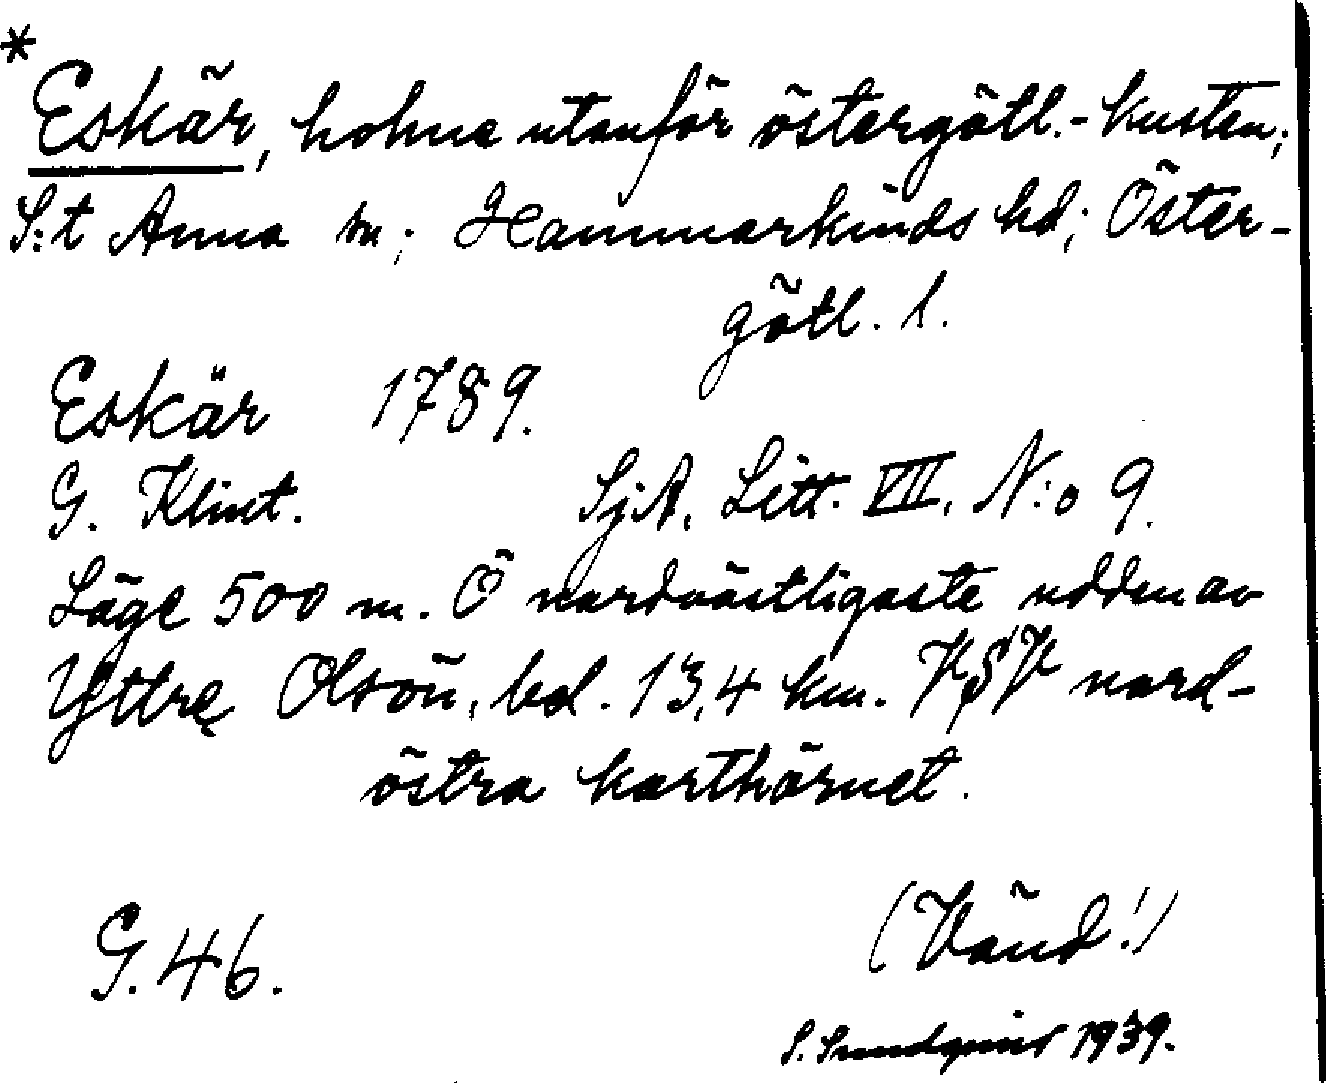 *
Eskär, holme utanför östergötl.-kusten;
S:t Anna sn; Hammarkinds hd; Öster-
götl. l.
Eskär 1789.
G. Klint. SjA. Litt. VII. N:o 9.
Läge 500 m. Ö nordvästligaste udden av
Yttre Olsön, bel. 13,4 km. VSV nord-
östra karthörnet.
G. 46. (Vänd!)
S. Sundquist 1939.